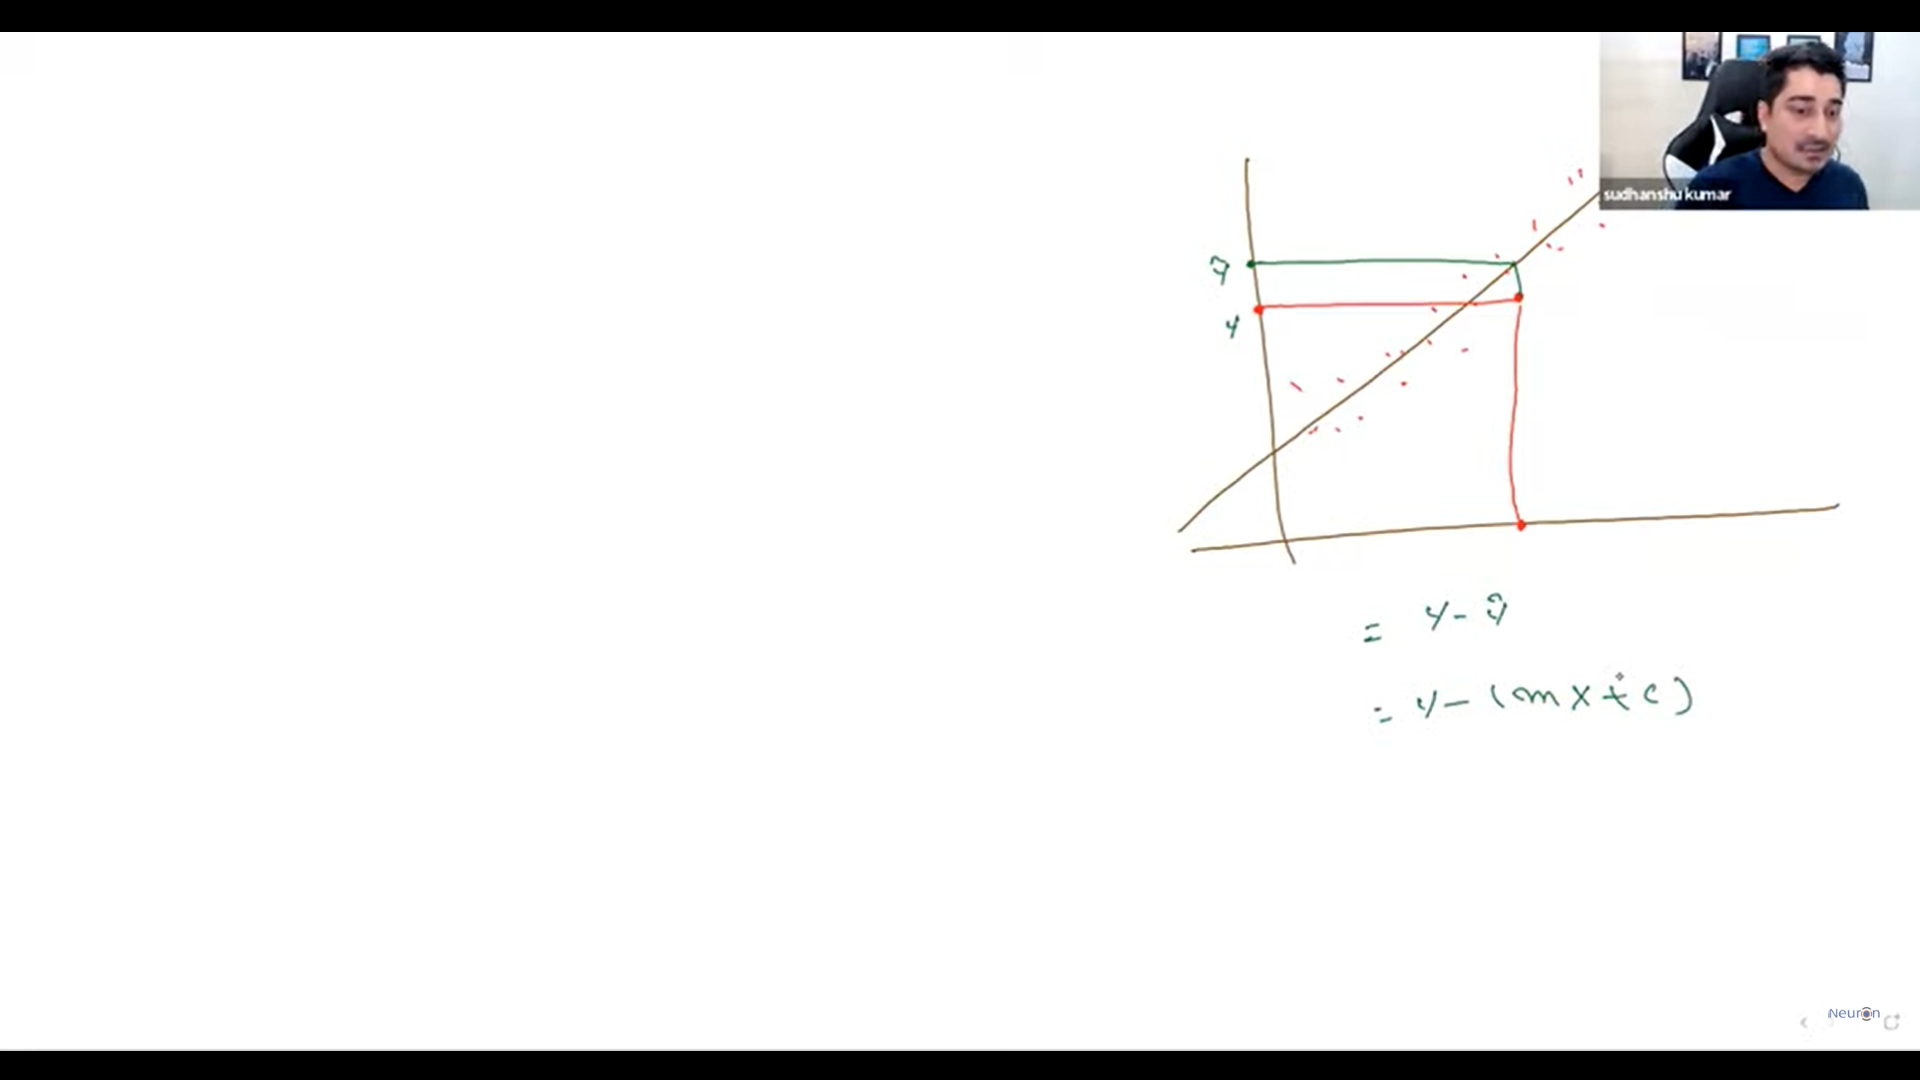 sudhanshu kumar
ŷ
y
= y - ŷ
= y - (mx + c)
Neuron